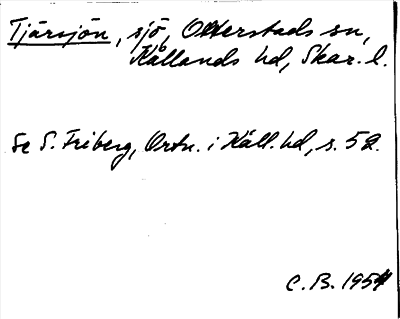 Tjärsjön, sjö, Otterstads sn,
Kållands hd, Skar. l.
Se S. Friberg, Ortn. i Kåll. hd, s. 52.
C.B. 1954